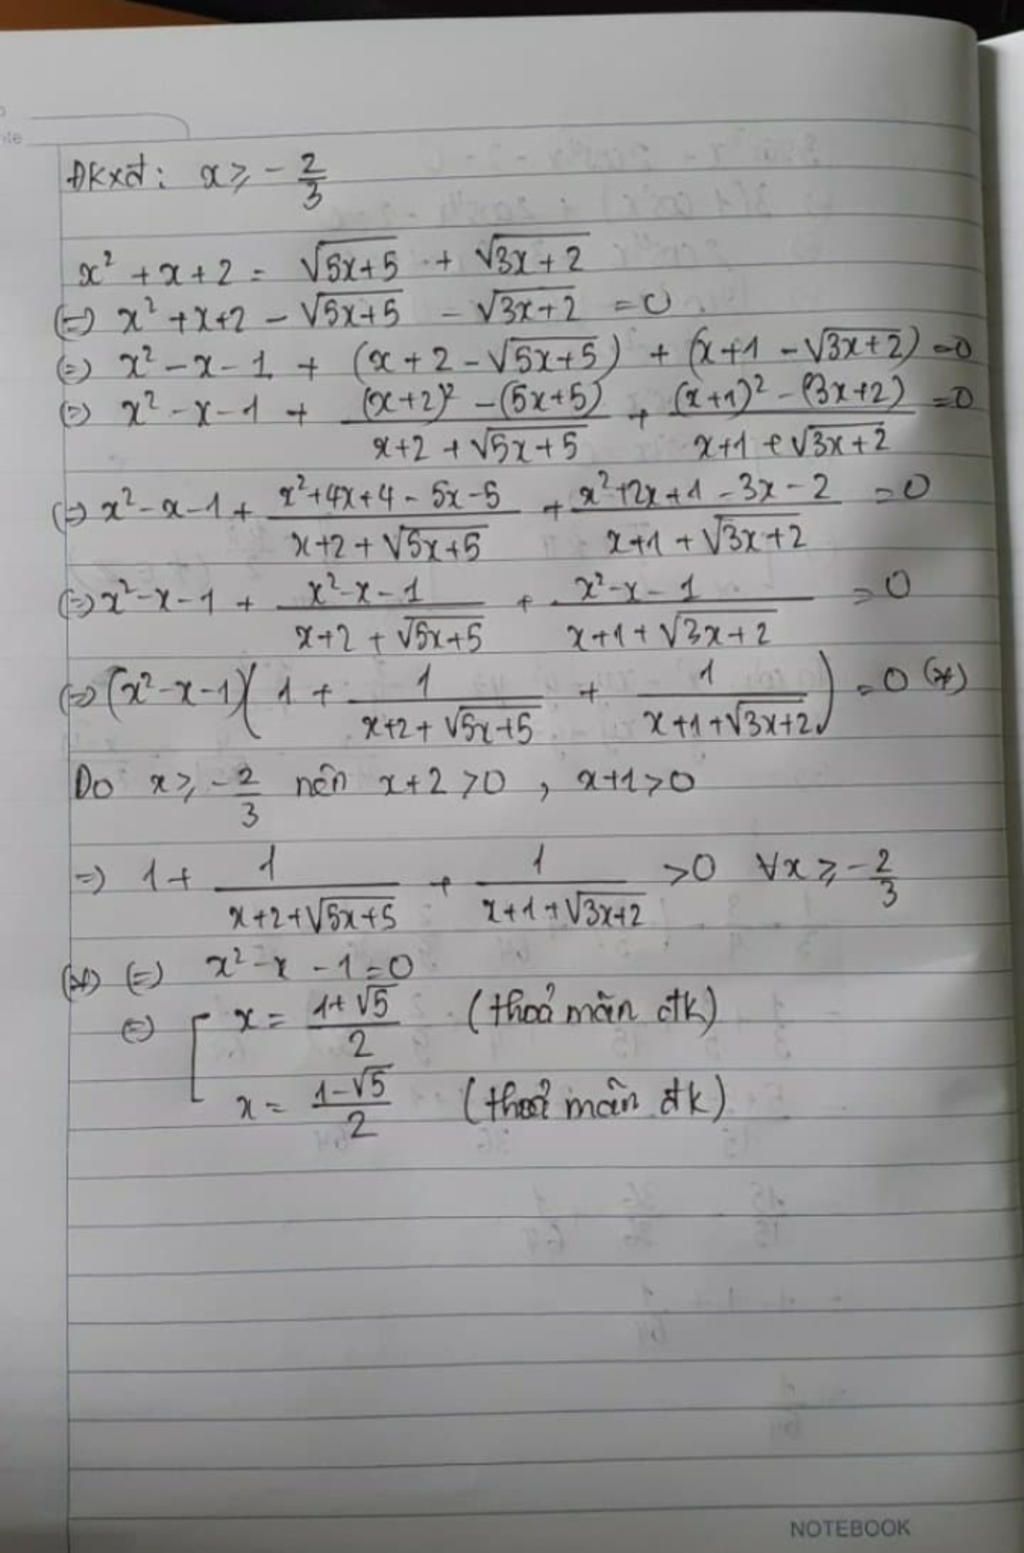 ĐKXĐ: x ≥ -2/3
x² + x + 2 = √(5x+5) + √(3x+2)
(=) x² + x + 2 - √(5x+5) - √(3x+2) = 0
(=) x² - x - 1 + (x + 2 - √(5x+5)) + (x+1 - √(3x+2)) = 0
(=) x² - x - 1 + ((x+2)² - (5x+5))/(x+2 + √(5x+5)) + ((x+1)² - (3x+2))/(x+1 + √(3x+2)) = 0
(=) x² - x - 1 + (x² + 4x + 4 - 5x - 5)/(x+2 + √(5x+5)) + (x² + 2x + 1 - 3x - 2)/(x+1 + √(3x+2)) = 0
(=) x² - x - 1 + (x² - x - 1)/(x+2 + √(5x+5)) + (x² - x - 1)/(x+1 + √(3x+2)) = 0
(=) (x² - x - 1)(1 + 1/(x+2 + √(5x+5)) + 1/(x+1 + √(3x+2))) = 0 (*)
Do x ≥ -2/3 nên x+2 > 0 , x+1 > 0
=) 1 + 1/(x+2+√(5x+5)) + 1/(x+1+√(3x+2)) > 0 ∀x ≥ -2/3
(*) (=) x² - x - 1 = 0
(=) [ x = (1+√5)/2 (thoả mãn đk)
x = (1-√5)/2 (thoả mãn đk)
NOTEBOOK